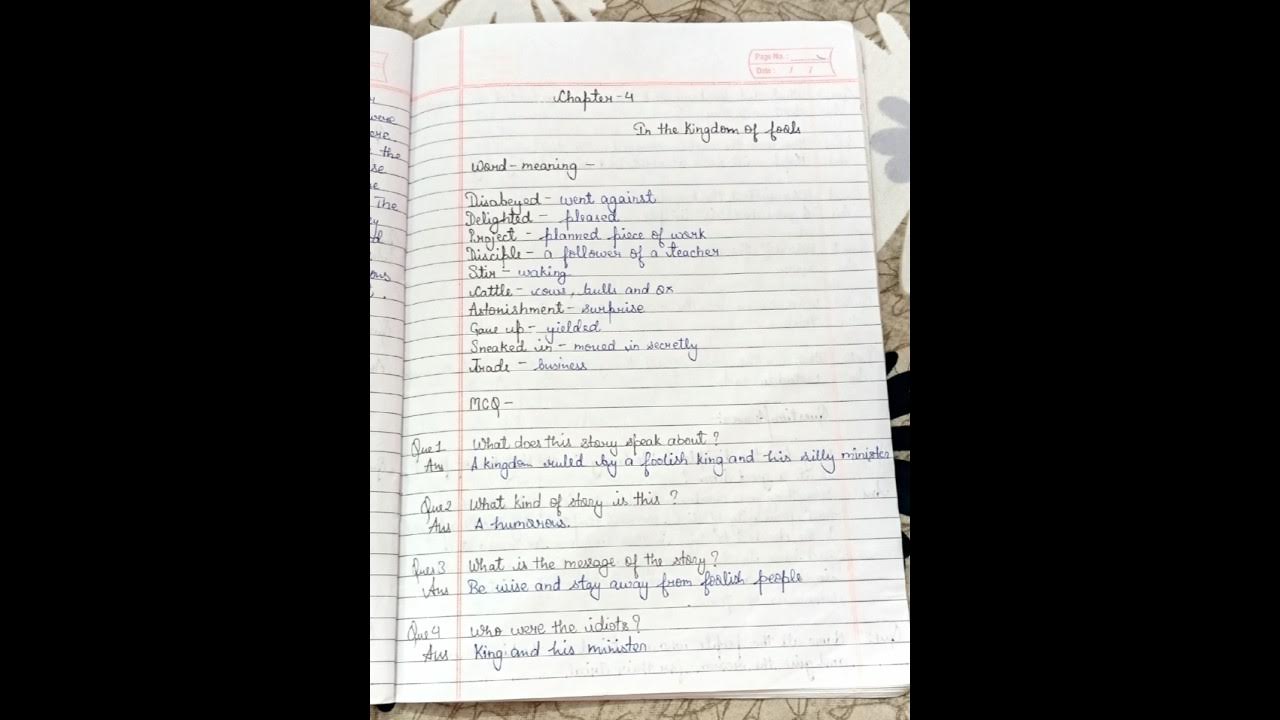 Page No.:
Date: / /
Chapter-4
In the kingdom of fools
Word-meaning -
Disobeyed - went against
Delighted - pleased
Project - planned piece of work
Disciple - a follower of a teacher
Stir - waking
Cattle - cows, bulls and ox
Astonishment - surprise
Gave up - yielded
Sneaked in - moved in secretly
Trade - business
MCQ -
Que 1 What does this story speak about?
Ans A kingdom ruled by a foolish king and his silly minister
Que 2 What kind of story is this?
Ans A humorous.
Ques 3 What is the message of the story?
Ans Be wise and stay away from foolish people
Que 4 Who were the idiots?
Ans King and his minister